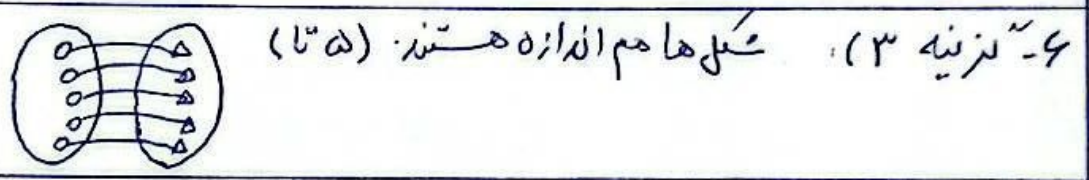 ۶- گزینه ۳). شکل ها هم اندازه هستند. (۵ تا)